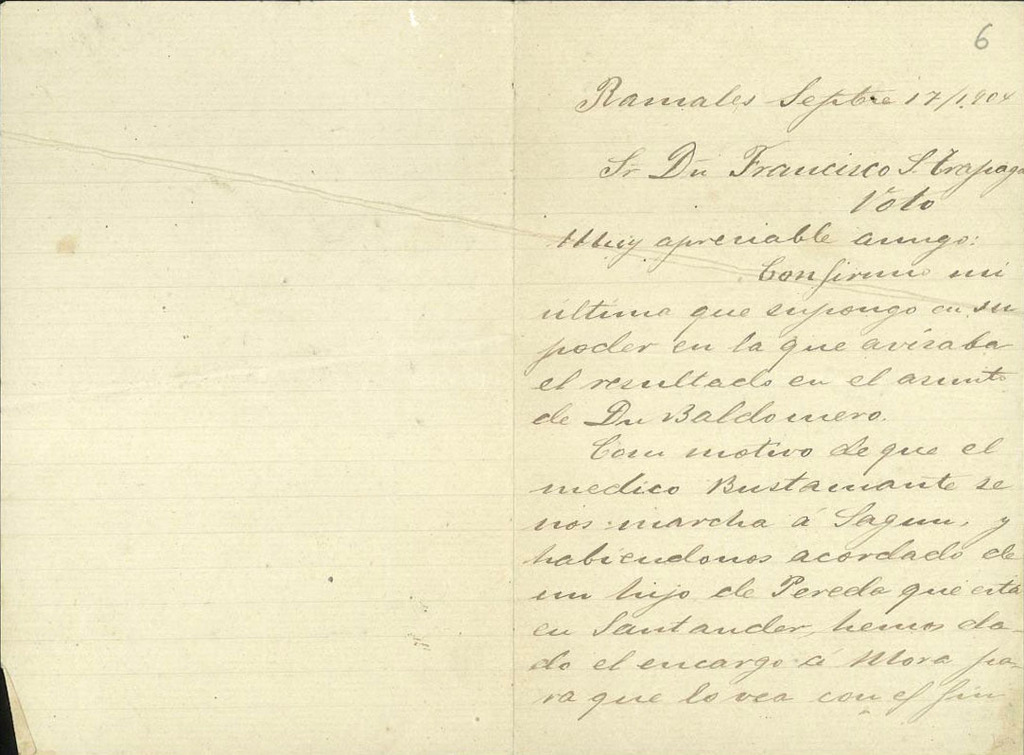 6
Ramales Septbre 17/1904
Sr Dn Francisco S. Trapaga
Voto
Muy apreciable amigo:
Confirmo mi
última que supongo en su
poder en la que avisaba
el resultado en el asunto
de Dn Baldomero.
Con motivo de que el
medico Bustamante se
nos marcha á y
habiendonos acordado de
un hijo de Pereda que está
en Santander, hemos da-
do el encargo á Mora pa-
ra que lo vea con el fin